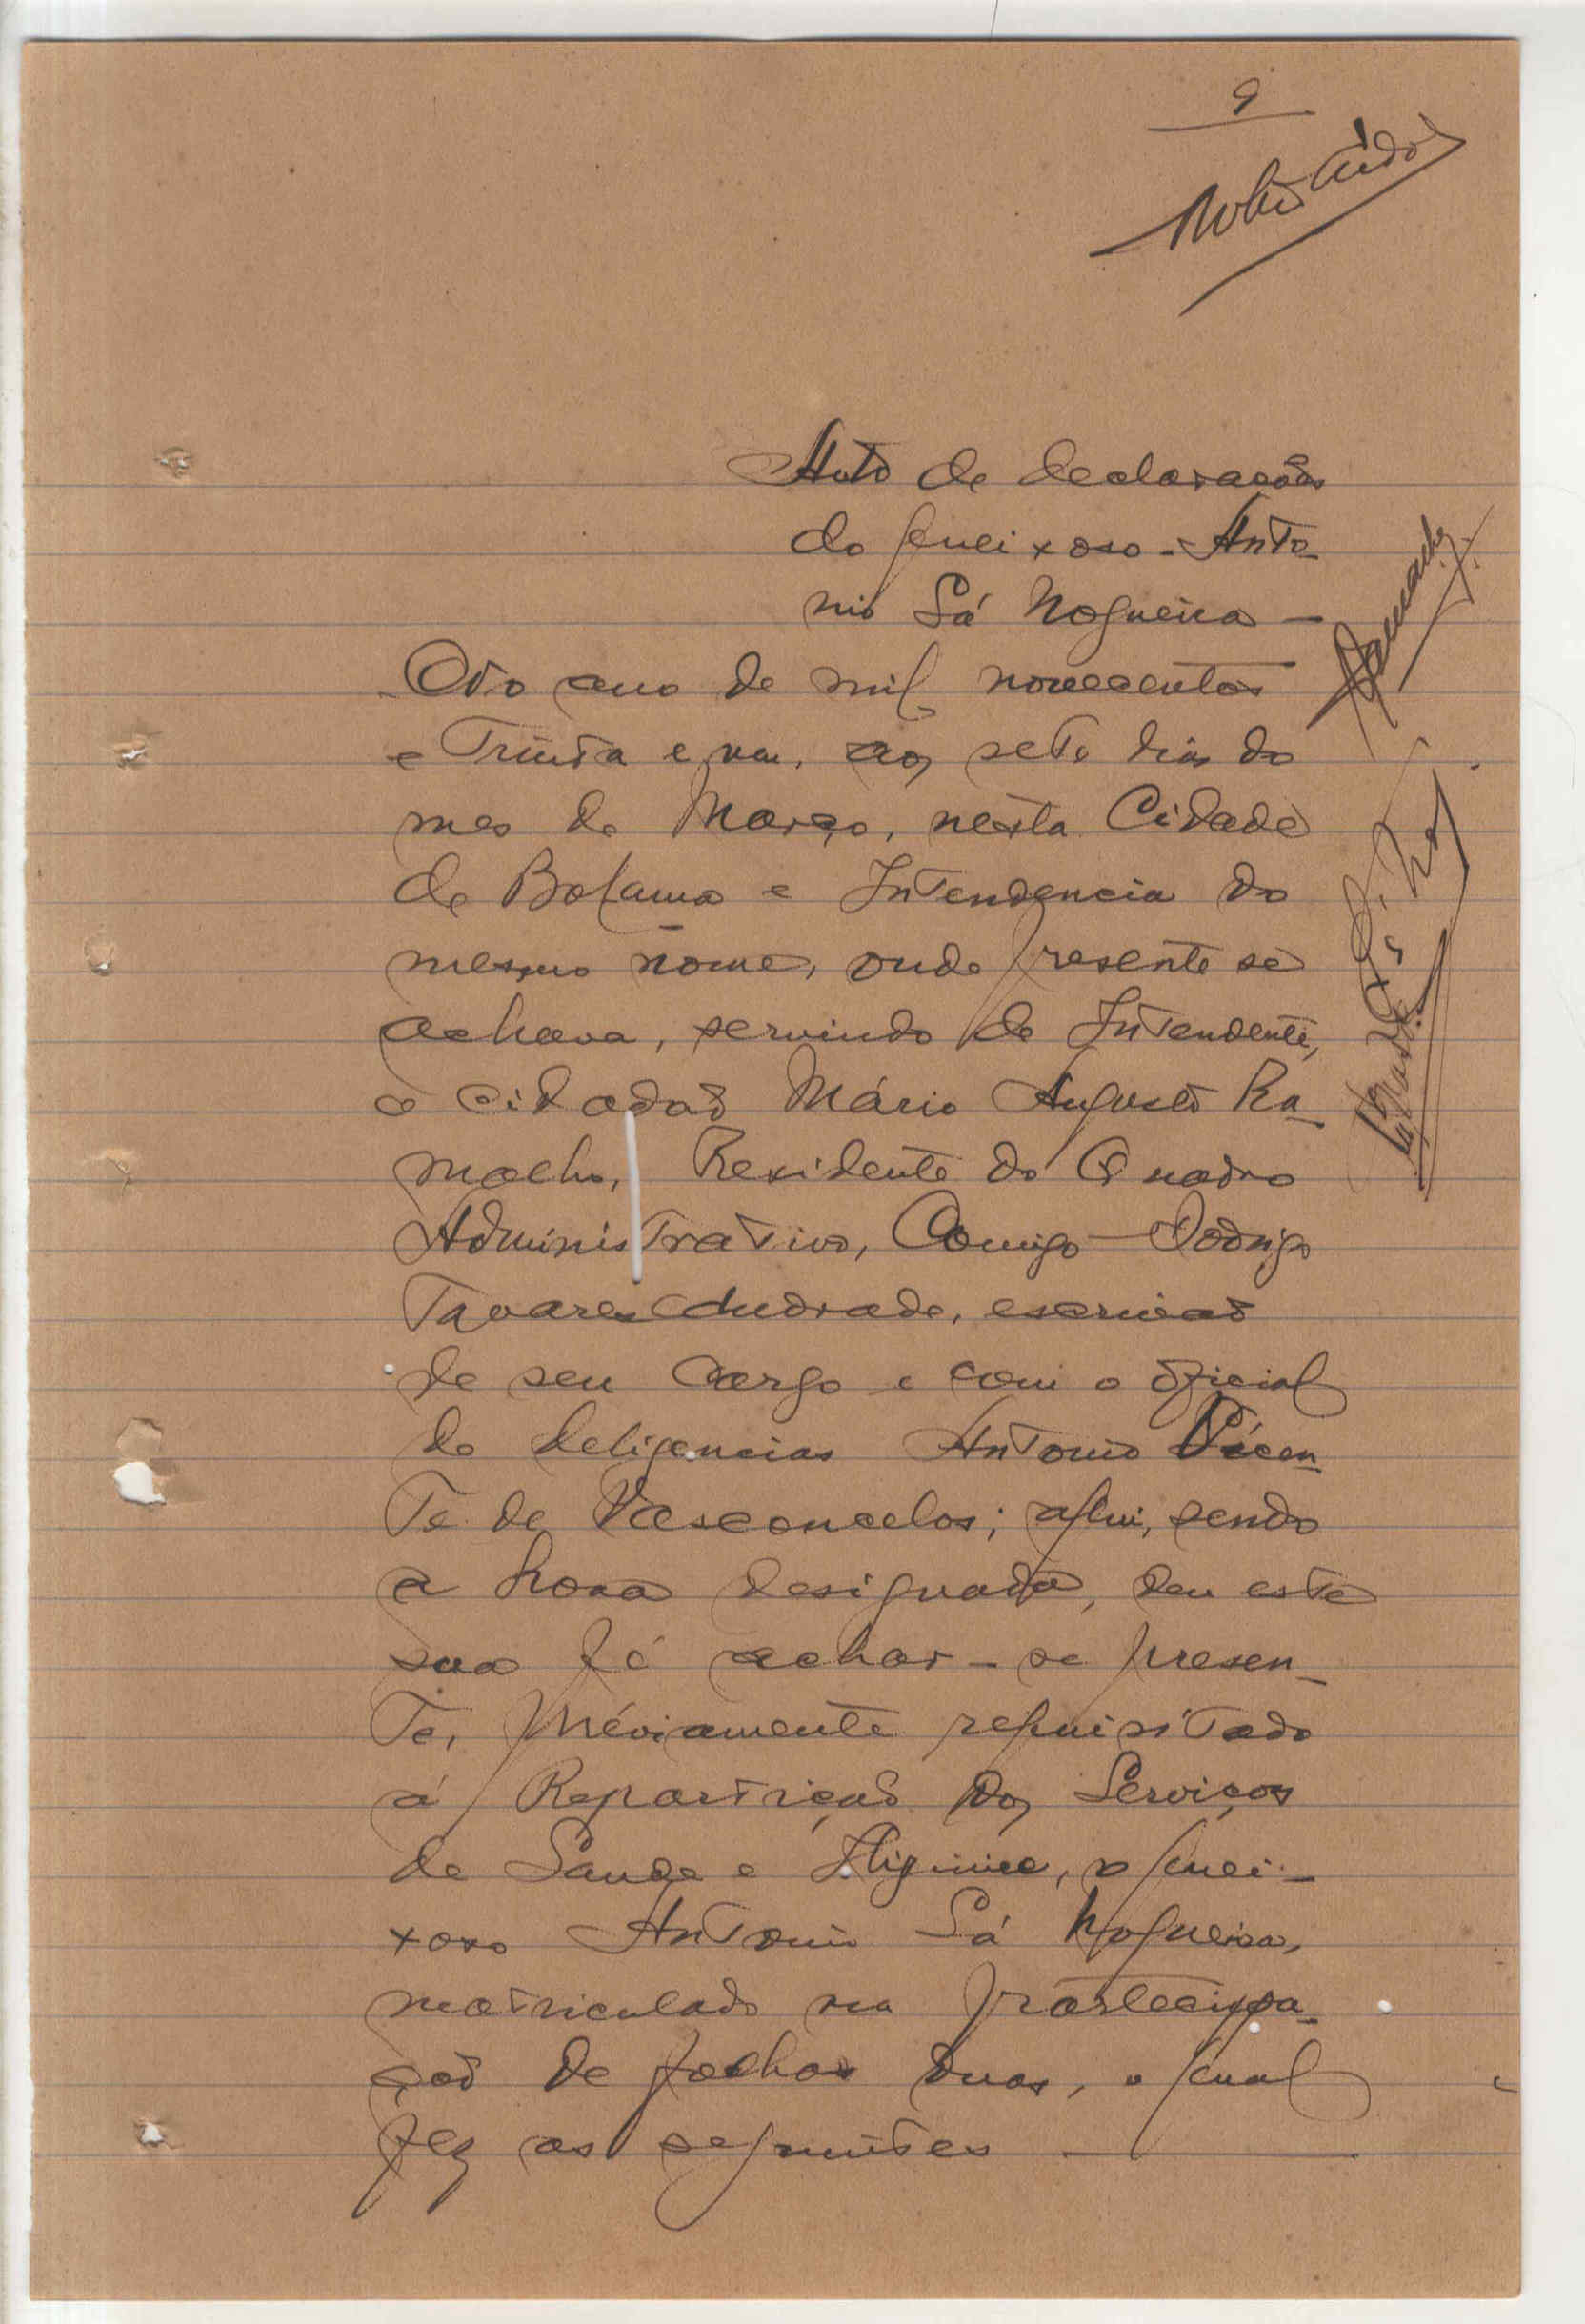 9
Auto de declarações
do queixoso - Anto-
nio Sá Nogueira -
Ano de mil novecentos
e Trinta e um, aos sete dias do
mes de Março, nesta Cidade
de Bolama e Intendencia do
mesmo nome, onde presente se
achava, servindo de Intendente,
o cidadaõ Mário Augusto Ra-
malho, Residente do Quadro
Administrativo, Comigo Rodrigo
Tavares Andrade, escrivaõ
de seu cargo e com o oficial
de deligencias Antonio Vicen-
Te de Vasconcelos; aqui, sendo
a hora designada, deu este
sua fé achar-se presen-
Te, préviamente requisitado
á Repartiçaõ dos Serviços
de Saude e Higiene, o quei-
xoso Antonio Sá Nogueira,
matriculado na partecipa-
çaõ de folhas duas, o qual
fez as seguintes -